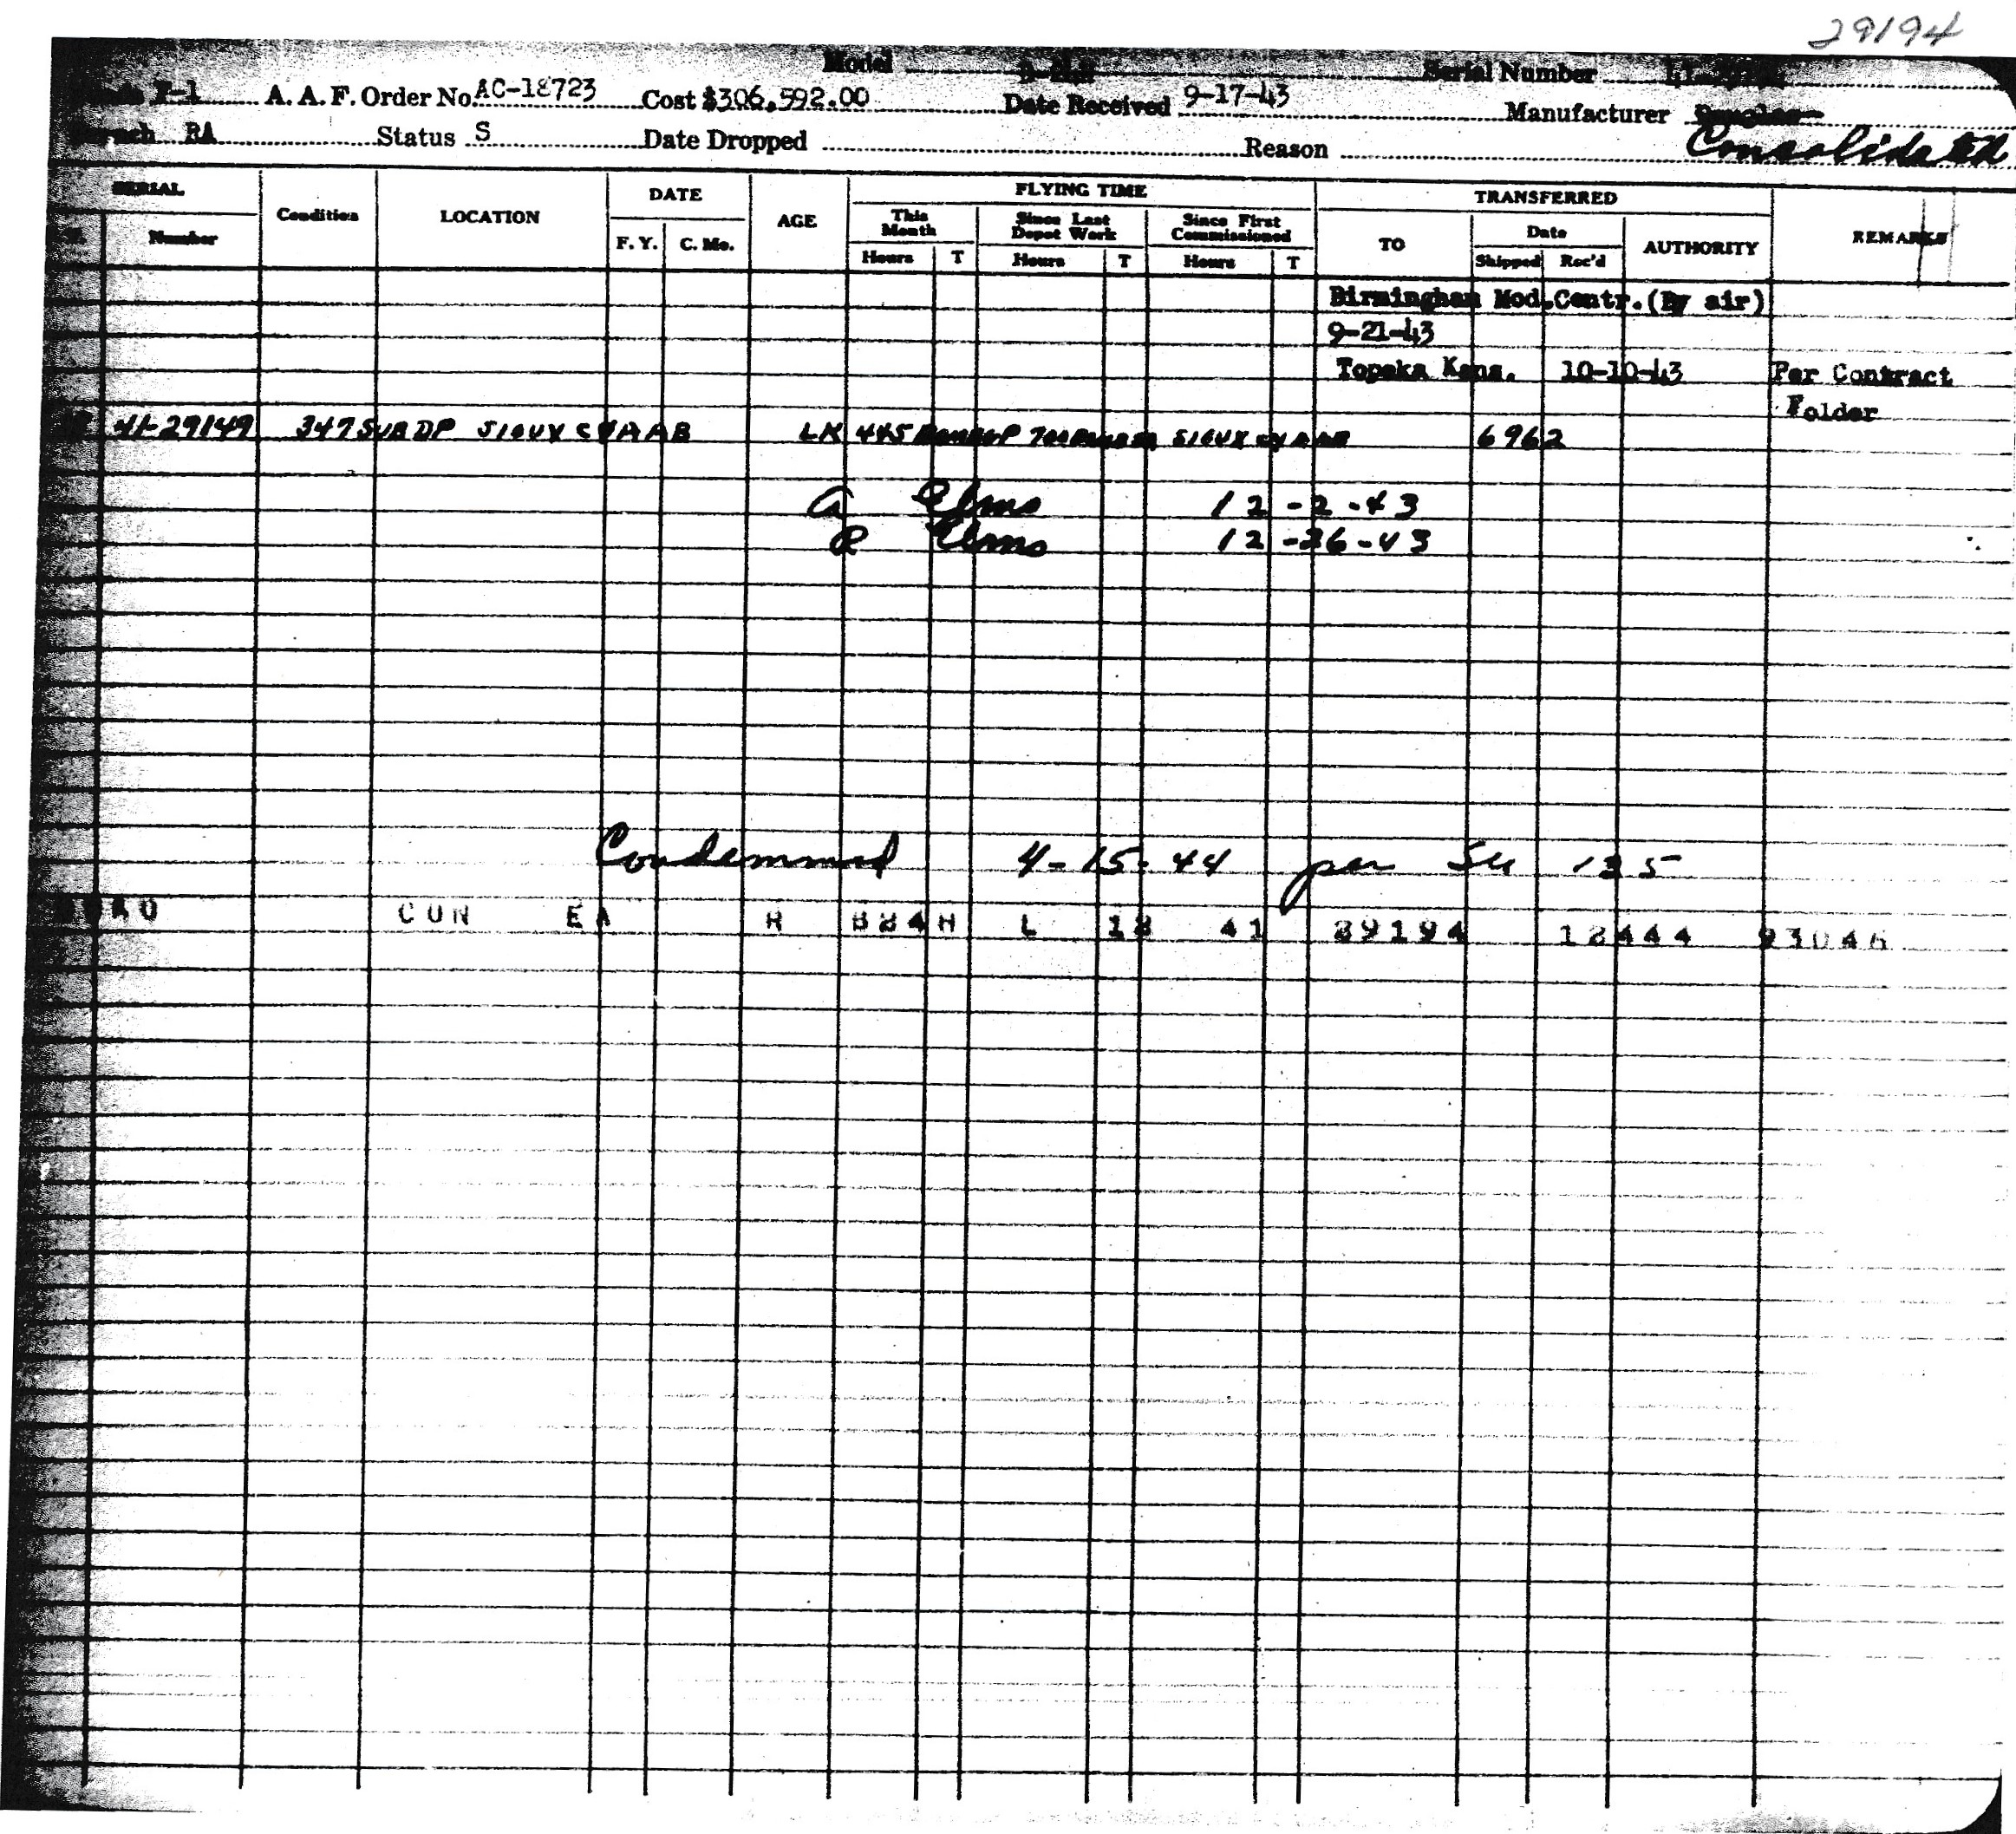 29194
Model Serial Number
F-1 A. A. F. Order No. AC-18723 Cost $306,592.00 Date Received 9-17-43 Manufacturer Douglas
RA Status S Date Dropped Reason Consolidated
SERIAL Condition LOCATION DATE AGE FLYING TIME TRANSFERRED REMARKS
Number F. Y. C. Mo. This Month Since Last Depot Work Since First Commissioned TO Date AUTHORITY
Hours T Hours T Hours T Shipped Rec'd
Birmingham Mod.Centr.(By air)
9-21-43
Topeka Kans. 10-10-43 Per Contract
Folder
41-29149 347 SUB DP SIOUX CY AAB LK 445 SIOUX CY AAB 6962
a Elms 12-2-43
R Elms 12-26-43
Condemned 4-15-44 per 135
CON EA H B24H L 12 41 29194 12444 93046